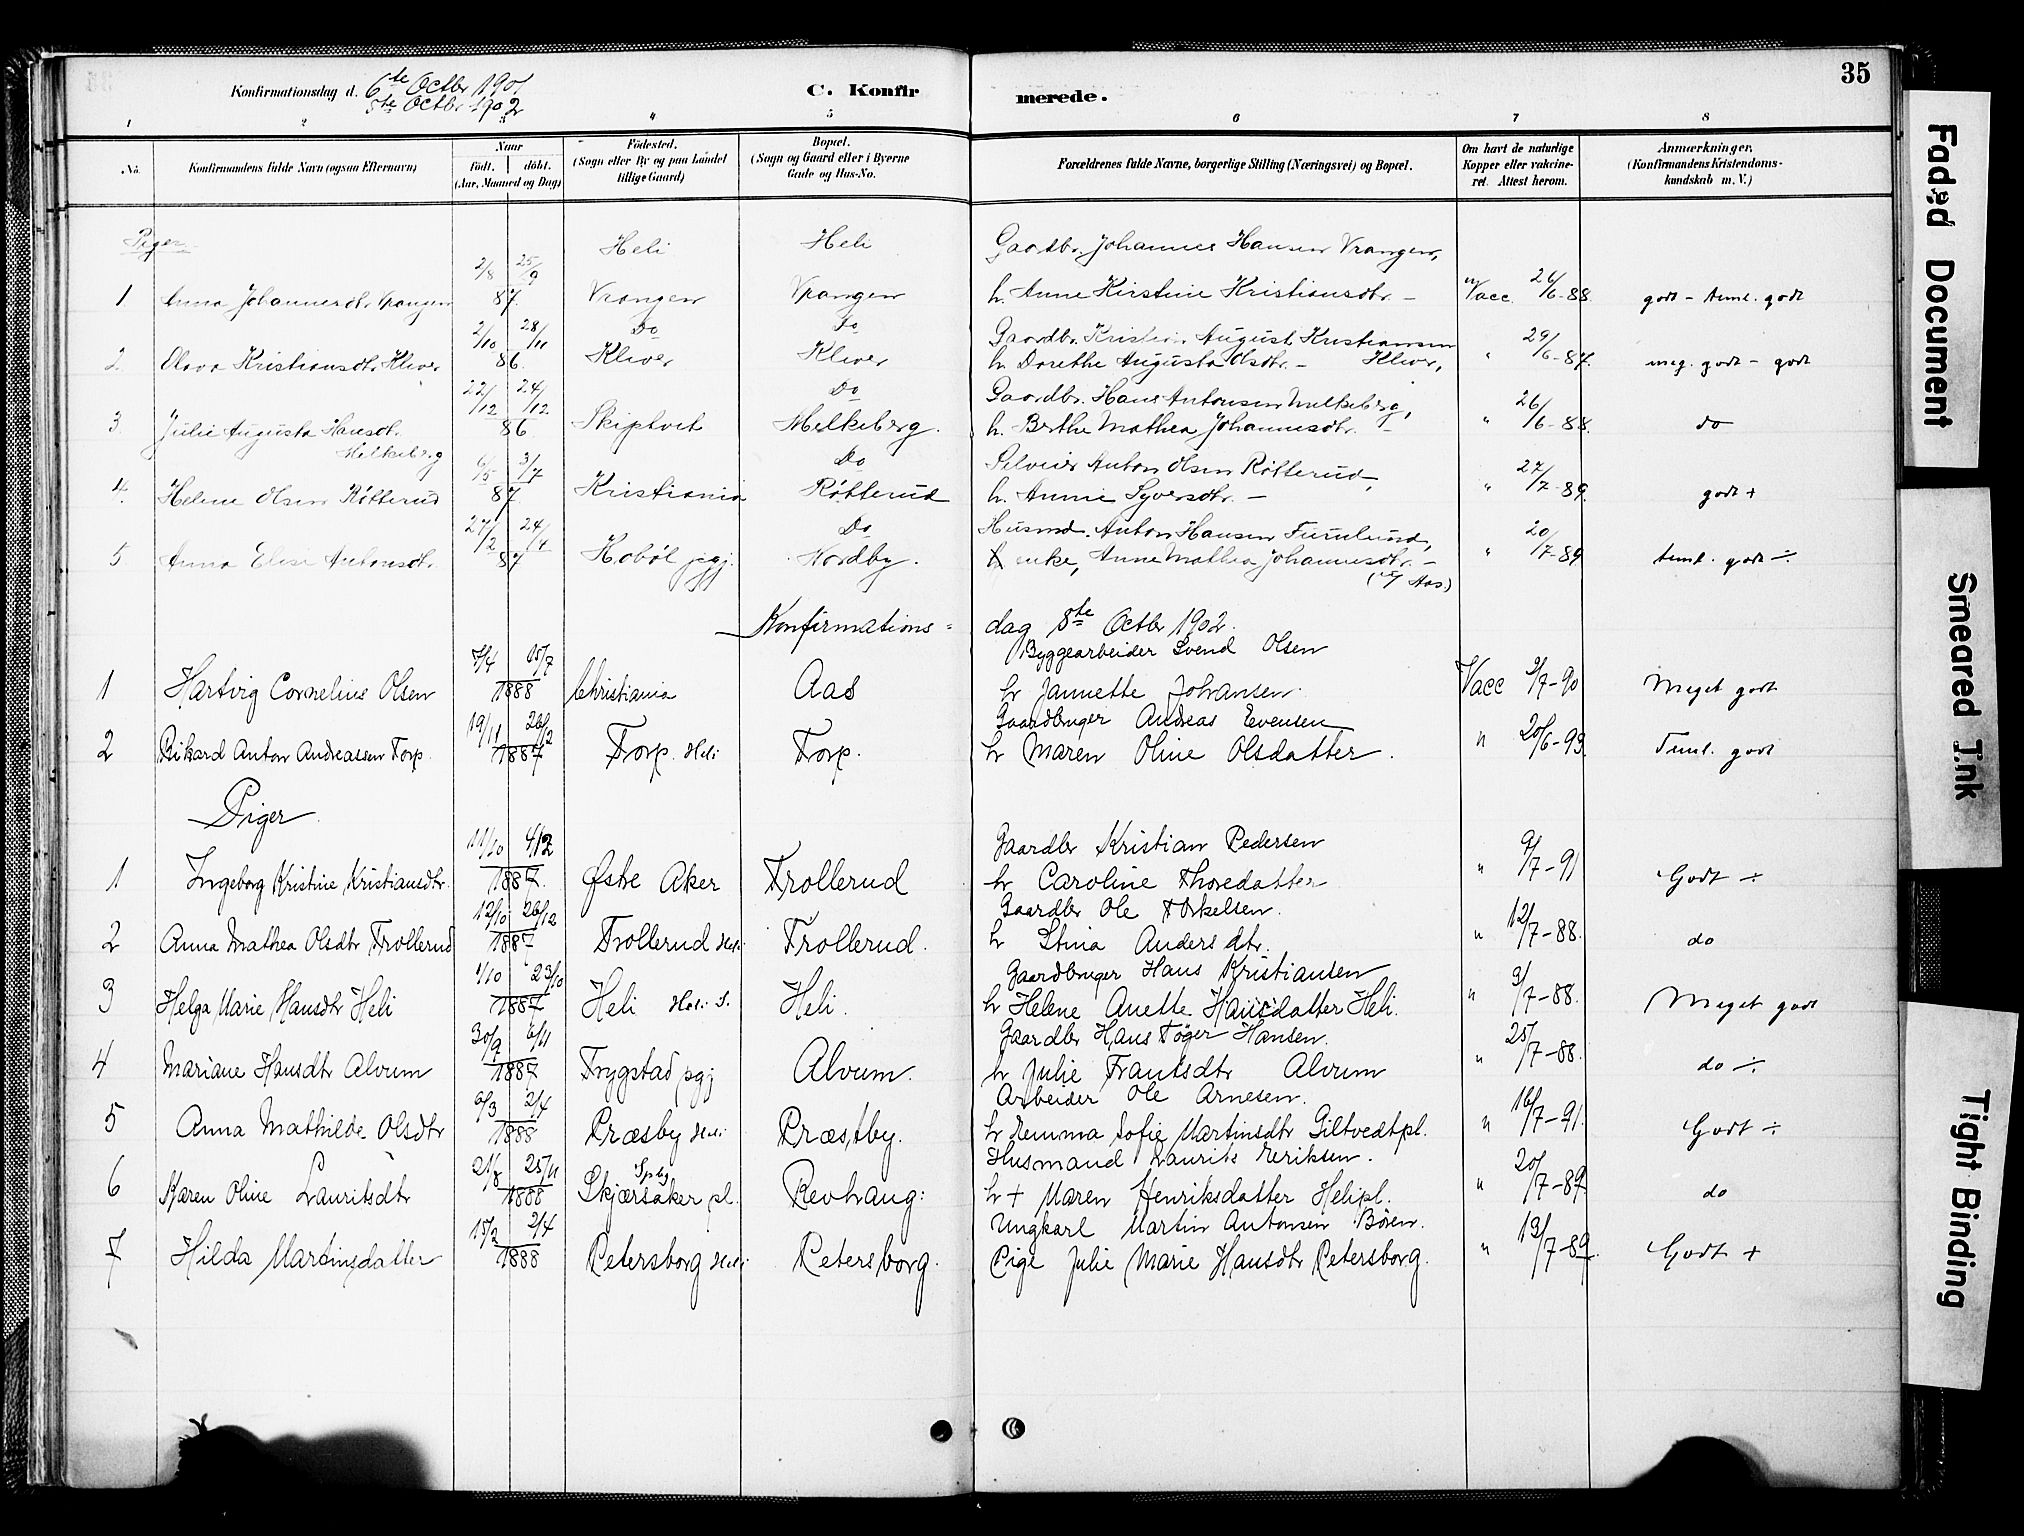 35
Konfirmationsdag d. 6te Octbr 1901
5te Octbr. 1902
C. Konfirmerede.
1 2 3 4 5 6 7 8
No. Konfirmandens fulde Navn (ogsaa Efternavn) Naar Födt. döbt. (Aar, Maaned og Dag) Födested. (Sogn eller By og paa Landet tillige Gaard) Bopæl. (Sogn og Gaard eller i Byerne Gade og Hus-No. Forældrenes fulde Navne, borgerlige Stilling (Næringsvei) og Bopæl. Om havt de naturlige Kopper eller vaccineret. Attest herom. Anmærkninger. (Konfirmandens Kristendomskundskab m. V.)
Piger Heli Heli Gaardbr. Johannes Hansen Vrangen,
1 Anna Johannesdtr. Vrangen 2/8 25/9 87. Vrangen Vrangen h. Anne Kirstine Kristiansdtr. – Vacc. 26/6-88. godt – teml. godt
Do Do Gaardbr. August Kristiansen
2. Kristiansdtr. Kliver 2/10 28/11 86. Kliver Kliver h. Dorethe Augusta Olsdtr. – Kliver, " 29/6-87. meg. godt – godt
Do Gaardbr. Hans Antonsen Melkeberg,
3 Julie Augusta Hansdt. Melkeberg 22/12 24/12 86 Skiptvet Melkeberg. h. Berthe Mathea Johannesdtr. – " 26/6-88. do
Do Selveier Anton Olsen Røtterud,
4. Helene Olsen Røtterud 6/5 3/7 87 Kristiania Røtterud h. Annie Syversdtr. – " 27/7-89. godt +
Do Husmd. Anton Hansen Furulund,
5 Anna Elise Antonsdt. 27/2 24/4 87 Hobøl pgj. Nordby. enke, Anne Mathea Johannesdtr. – " 20/7-89 teml. godt ÷
Konfirmations= dag 5te Octbr 1902.
Byggearbeider Svend Olsen
1 Hartvig Cornelius Olsen 7/4 15/7 1888 Christiania Aas h Jannette Johansen. Vacc 3/7-90 Meget godt
Gaardbruger Andreas Evensen
2 Rikard Anton Andreassen Torp. 19/11 26/12 1887 Torp. Heli Torp. h Maren Oline Olsdatter. " 20/6-93. Teml. godt
Piger
Gaardbr Kristian Pedersen
1 Ingeborg Kristine Kristiansdtr. 11/10 4/12 1887. Østre Aker Trollerud h Caroline Thoredatter " 9/7-91 Godt ÷
Gaardbr Ole Torkelsen.
2 Anna Mathea Olsdtr Trollerud 12/10 26/12 1887 Trollerud Heli Trollerud. h Stina Andersdtr. " 12/7-88. do
Gaardbruger Hans Kristiansen
3 Helga Marie Hansdtr Heli 1/10 23/10 1887 Heli Heli S. Heli. h Helene Anette Hansdatter Heli. " 3/7-88. Meget godt
Gaardbr Hans Tøger Hansen.
4 Mariane Hansdtr Alvum 30/9 6/11 1887 Trygstad pgj Alvum. h Julie Frantsdtr Alvum " 25/7-88. do ÷
Arbeider Ole Arnesen.
5 Anna Mathilde Olsdtr 6/3 2/4 1888 Præsby Heli Præstby. h Emma Sofie Martinsdtr Giltvedtpl. " 16/7-91. Godt ÷
Husmand Laurits Eriksen.
6 Karen Oline Lauritsdtr 21/8 25/11 1888 Skjærsaker pl. Spbg Revhaug: h + Maren Henriksdatter Helipl. " 20/7-89. do
Ungkarl Martin Antonsen Bøien.
7 Hilda Martinsdatter 15/2 2/4 1888 Petersborg Heli Petersborg. Pige Julie Marie Hansdtr Petersborg. " 13/7-89. Godt +
Faded Document
Smeared Ink
Tight Binding